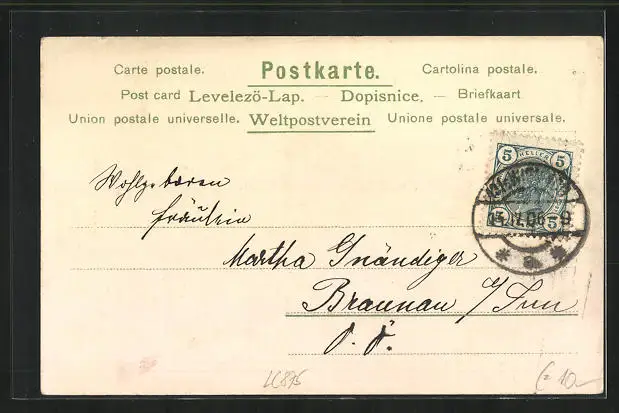 Carte postale. Postkarte. Cartolina postale.
Post card Levelező-Lap. — Dopisnice. — Briefkaart
Union postale universelle. Weltpostverein Unione postale universale.
5 HELLER 5
13.IV.06 9
5
Wohlgeboren
Fräulein
Martha Gnändiger
Braunau a/Inn
O. Ö.
LC875